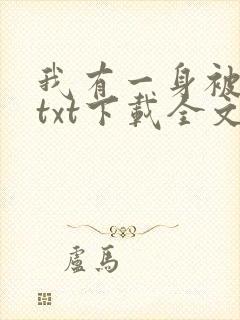 我有一身被
txt下載全文
盧馬